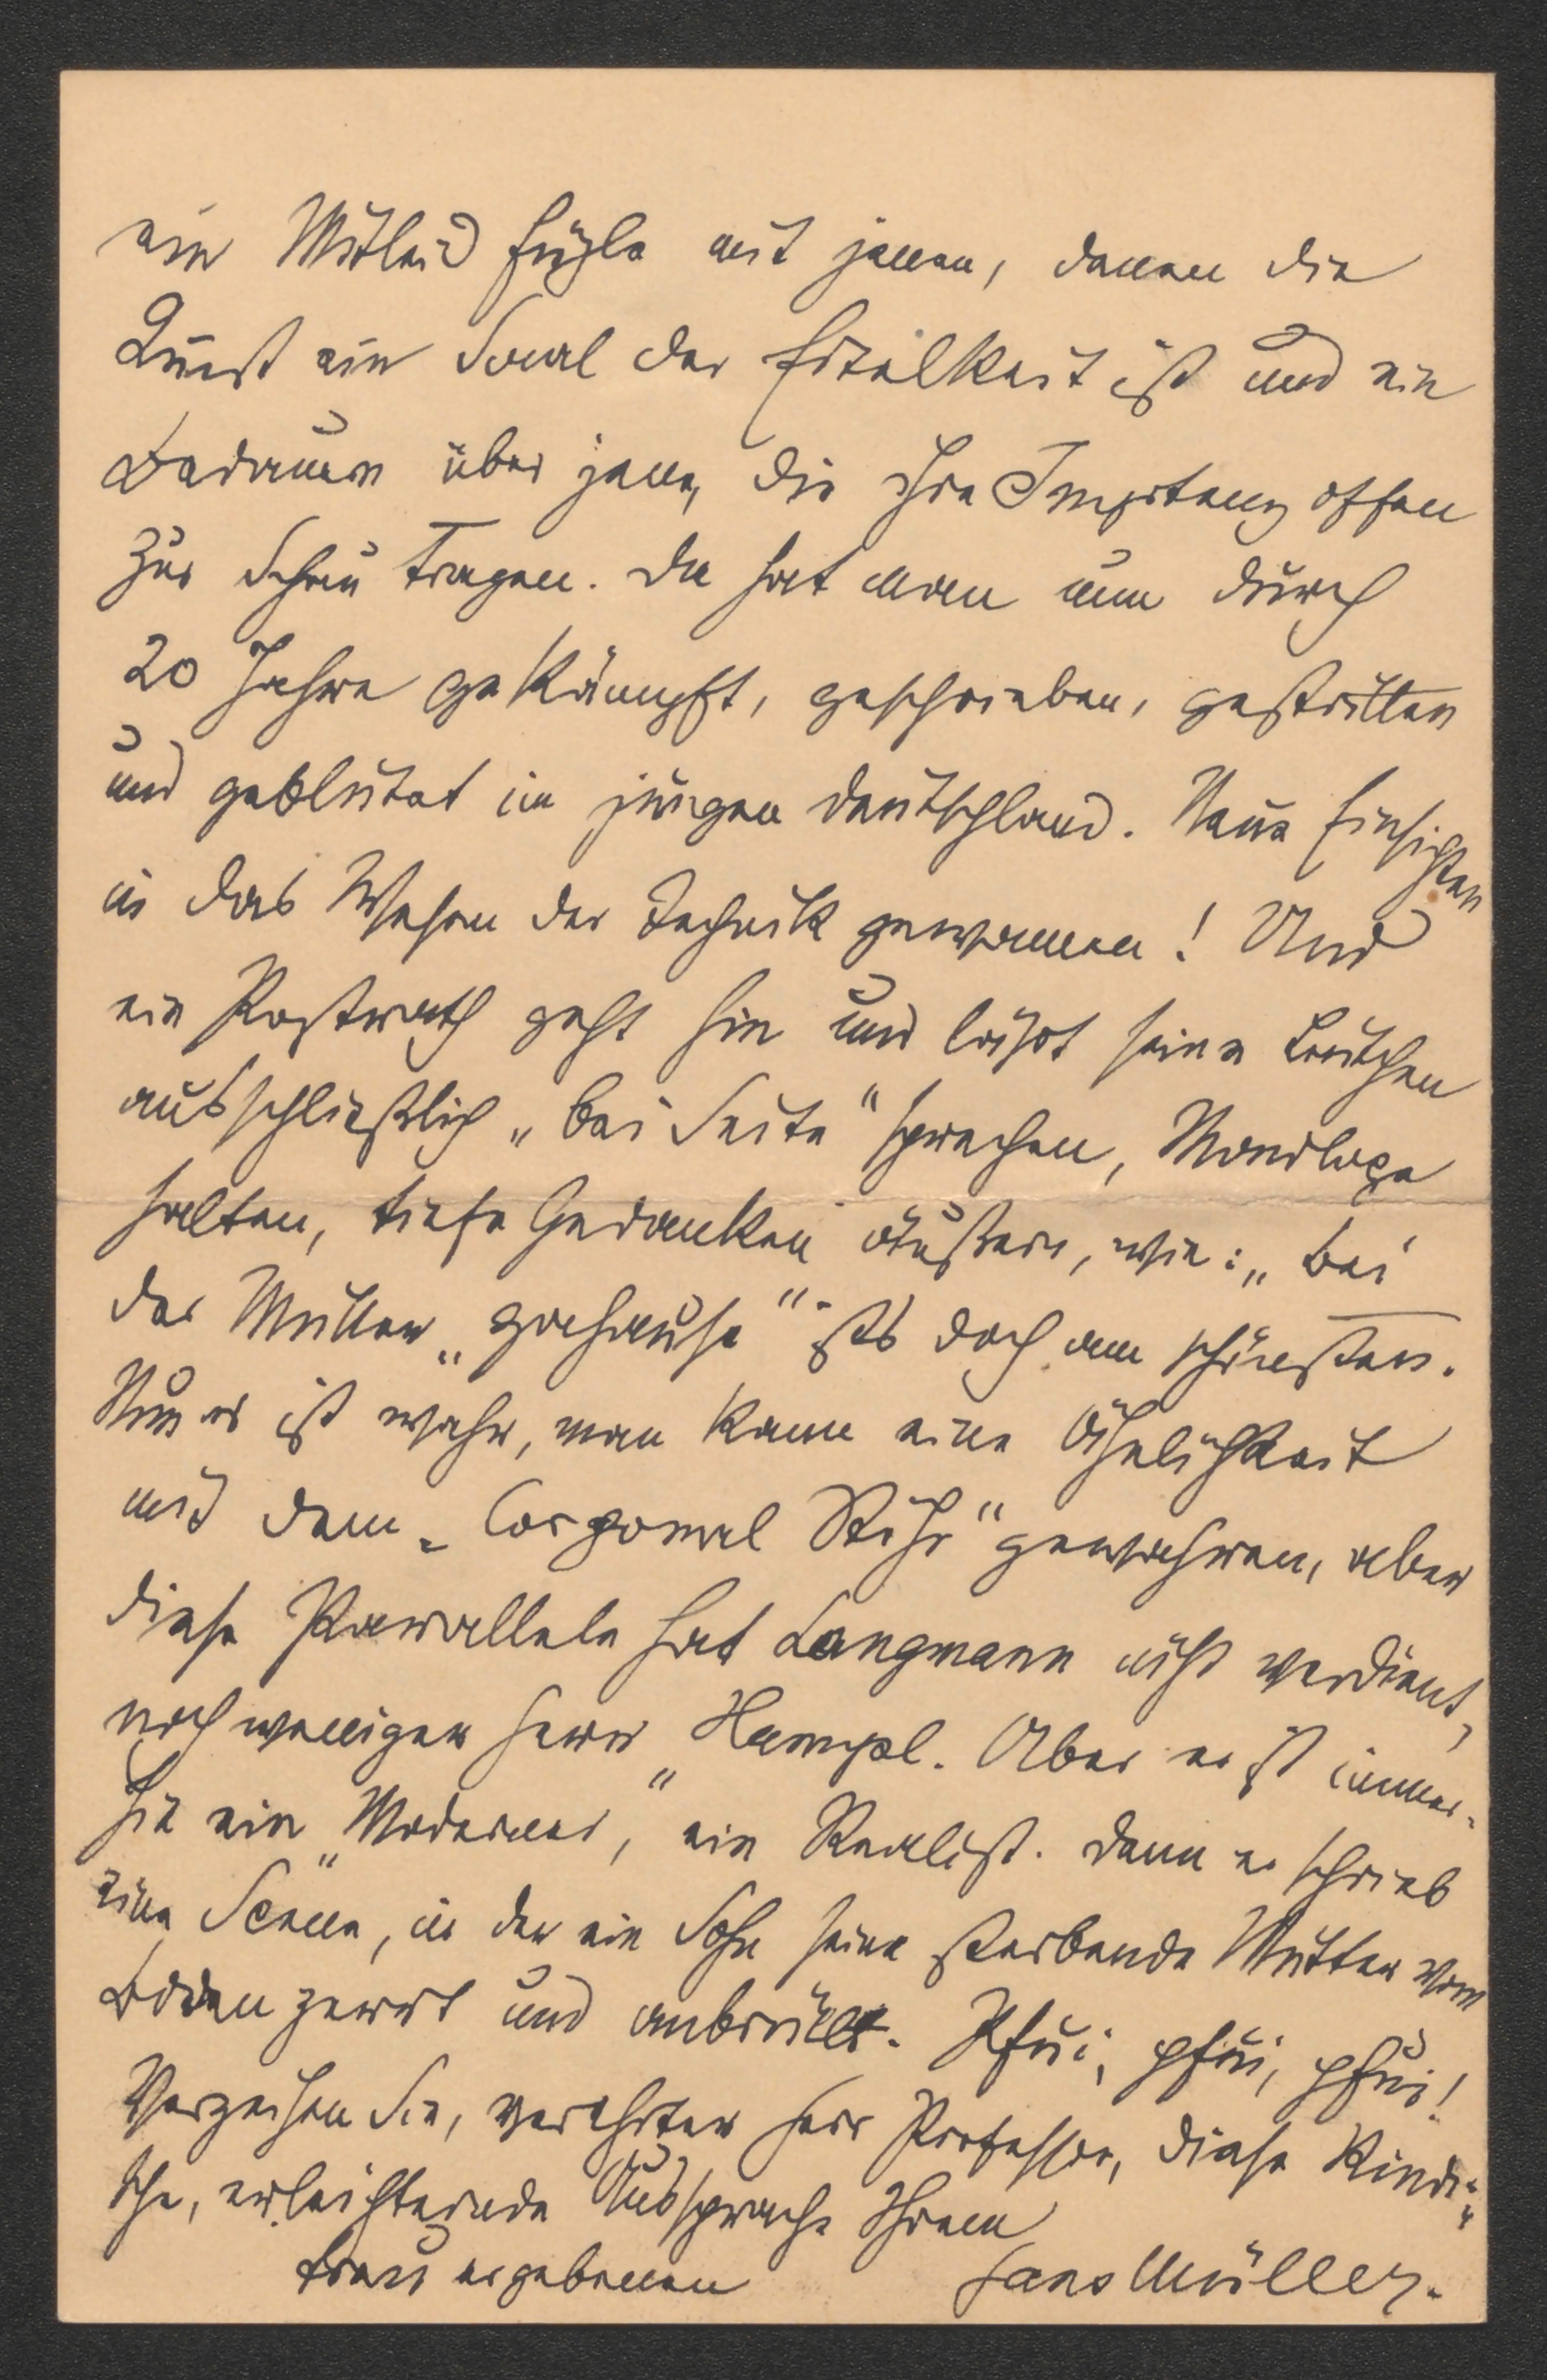 ein Mitleid fühle mit jenen, denen die
Kunst ein Soual der Eitelkeit ist und ein
Bedauern über jene, die ihre Impotenz offen
zur Schau tragen. Da hat man nun durch
20 Jahre gekämpft, geschrieben, gestritten
und geblutet im jungen Deutschland. Neue Einsichten
in das Wesen der Technik gewonnen! Und
ein Postrath geht hin und läßt seine Leutchen
ausschließlich „bei Seite“ sprechen, Monologe
halten, tiefe Gedanken äußern, wie: „Bei
der Mutter „zehause“ ists doch am schönsten.
Nun es ist wahr, man kann eine Ähnlichkeit
mit dem „Corporal Stöhr“ gewahren, aber
diese Parallele hat Langmann nicht verdient,
noch weniger Herr Hampl. Aber er ist immer-
hin ein „Moderner“, ein Realist. Denn er schrieb
eine Scene, in der ein Sohn seine sterbende Mutter vom
Boden zerrt und anbrüllt. Pfui, pfui, pfui!
Verzeihen Sie, verehrter Herr Professor, diese kindi-
sche, erleichternde Aussprache Ihrem
treu ergebenen Hans Müller.